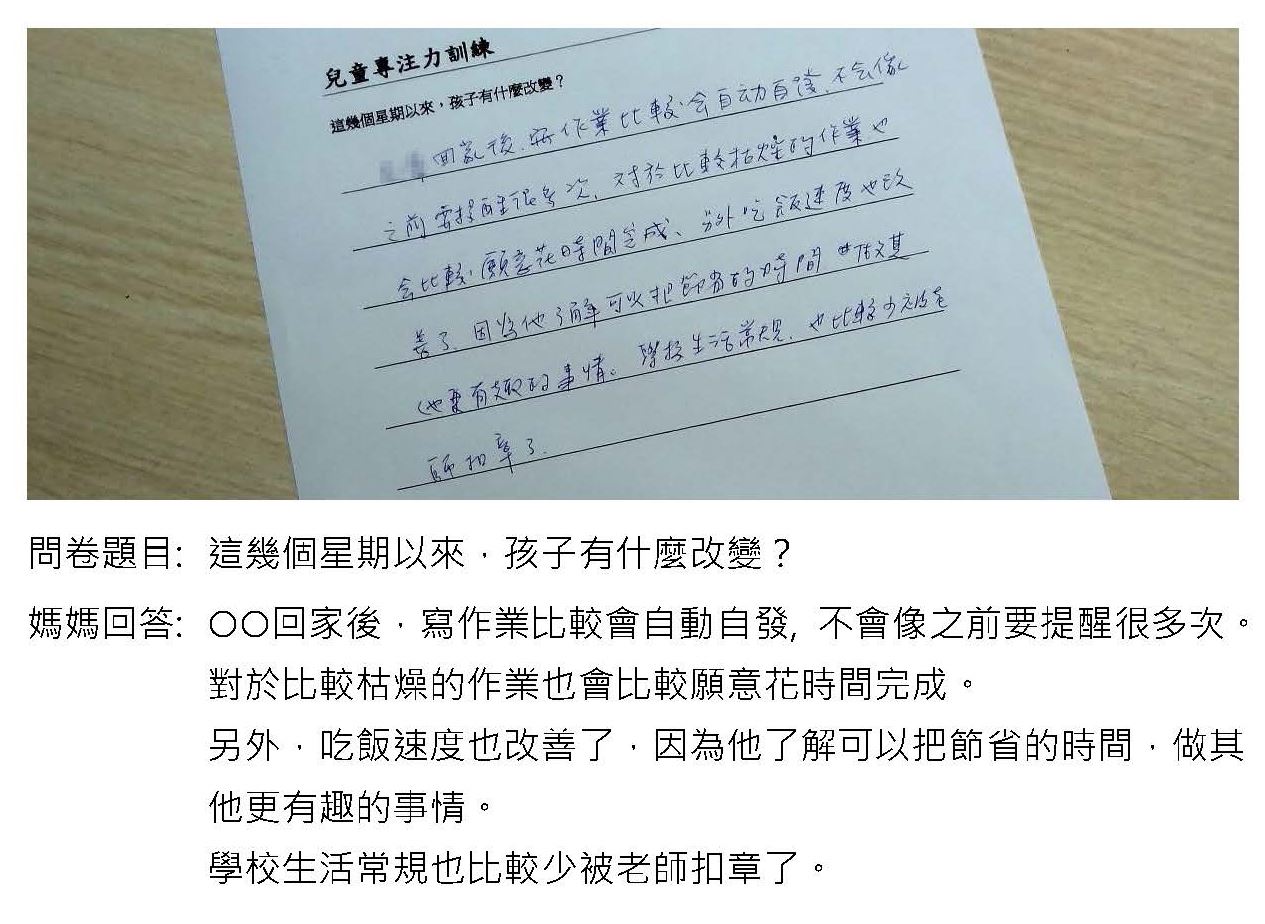 兒童專注力訓練
這幾個星期以來，孩子有什麼改變？
回家後、寫作業比較會自动自發、不会像
之前要提醒很多次、对於比較枯燥的作業也
会比較願意花時間完成、另外吃飯速度也改
善了、因為他了解可以把節省的時間 做其
他更有趣的事情。學校生活常規、也比較少被老
師扣章了.
問卷題目: 這幾個星期以來，孩子有什麼改變？
媽媽回答: 〇〇回家後，寫作業比較會自動自發, 不會像之前要提醒很多次。
對於比較枯燥的作業也會比較願意花時間完成。
另外，吃飯速度也改善了，因為他了解可以把節省的時間，做其
他更有趣的事情。
學校生活常規也比較少被老師扣章了。